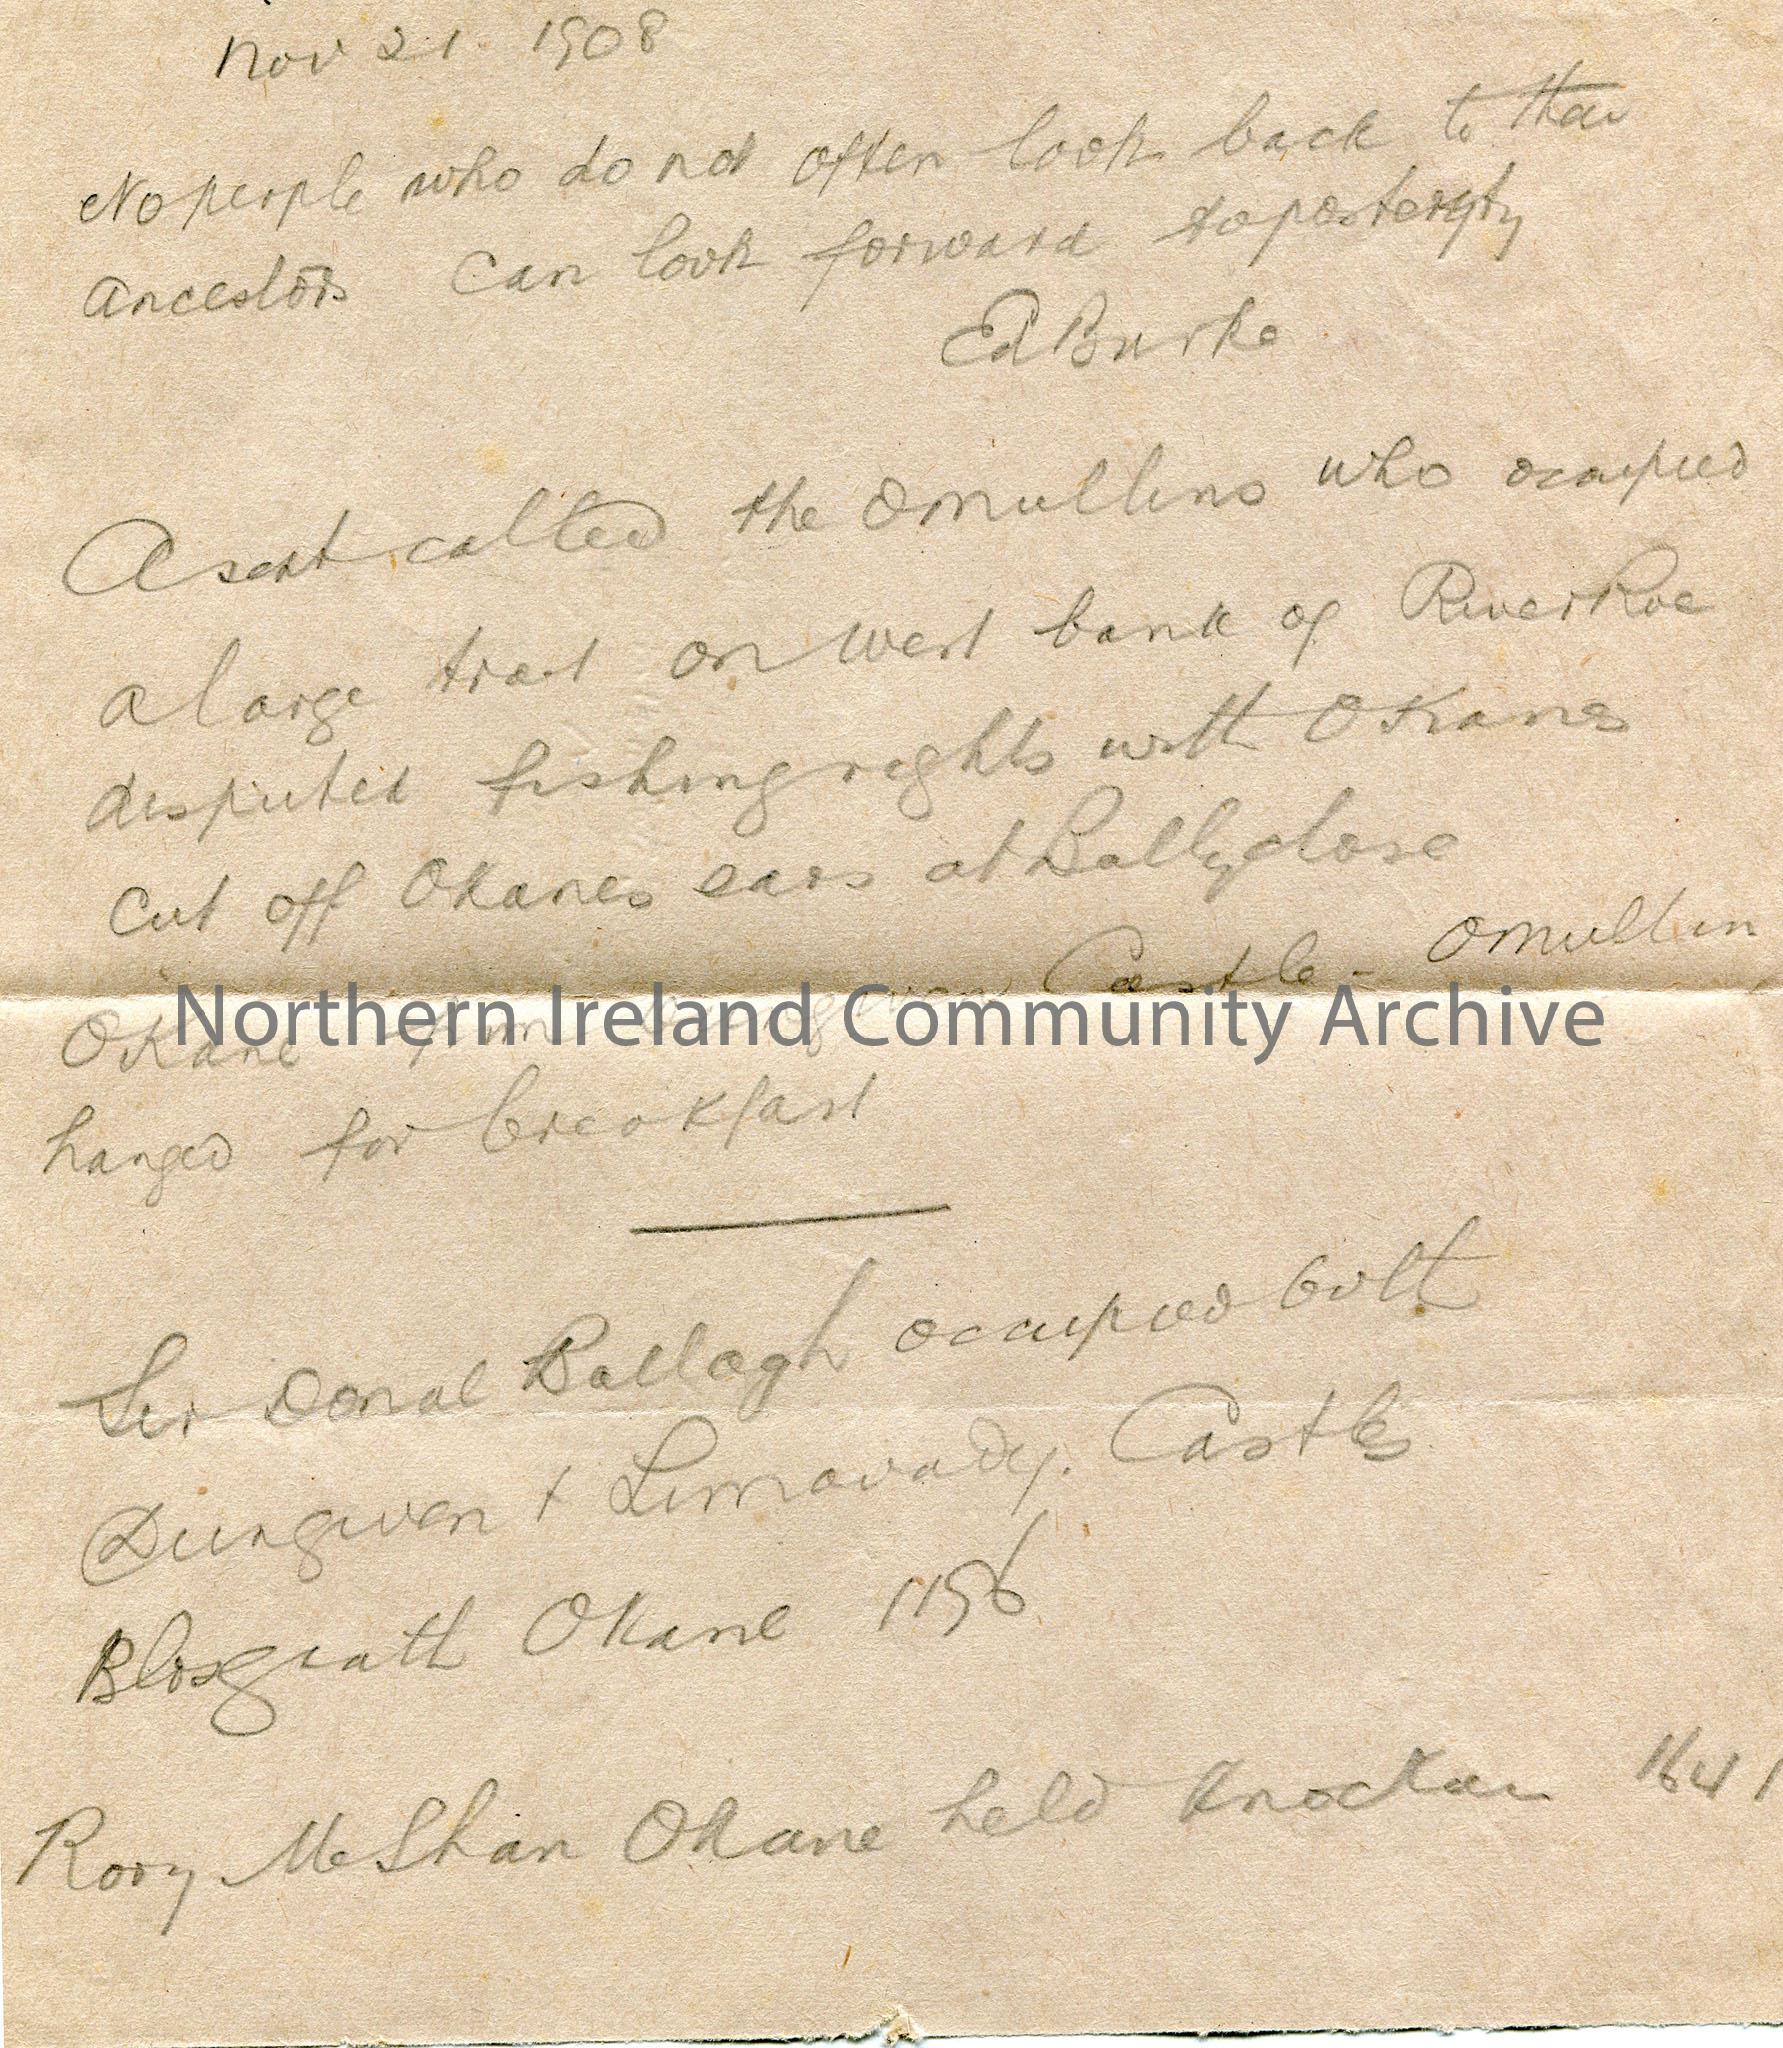 Nov 21. 1908
No people who do not often look back to their
ancestors can look forward to posterity
Ed Burke
A sept called the OMullins who occupied
a large tract on West bank of River Roe
disputed fishing rights with OKanes
Cut off OKanes ears at Ballyclose
Castle - OMullin
OKane
Northern Ireland Community Archive
hanged for breakfast
Sir Donal Ballagh occupied both
Dungiven + Limavady. Castles
OKane 1196
Rory McShan OKane held 1641